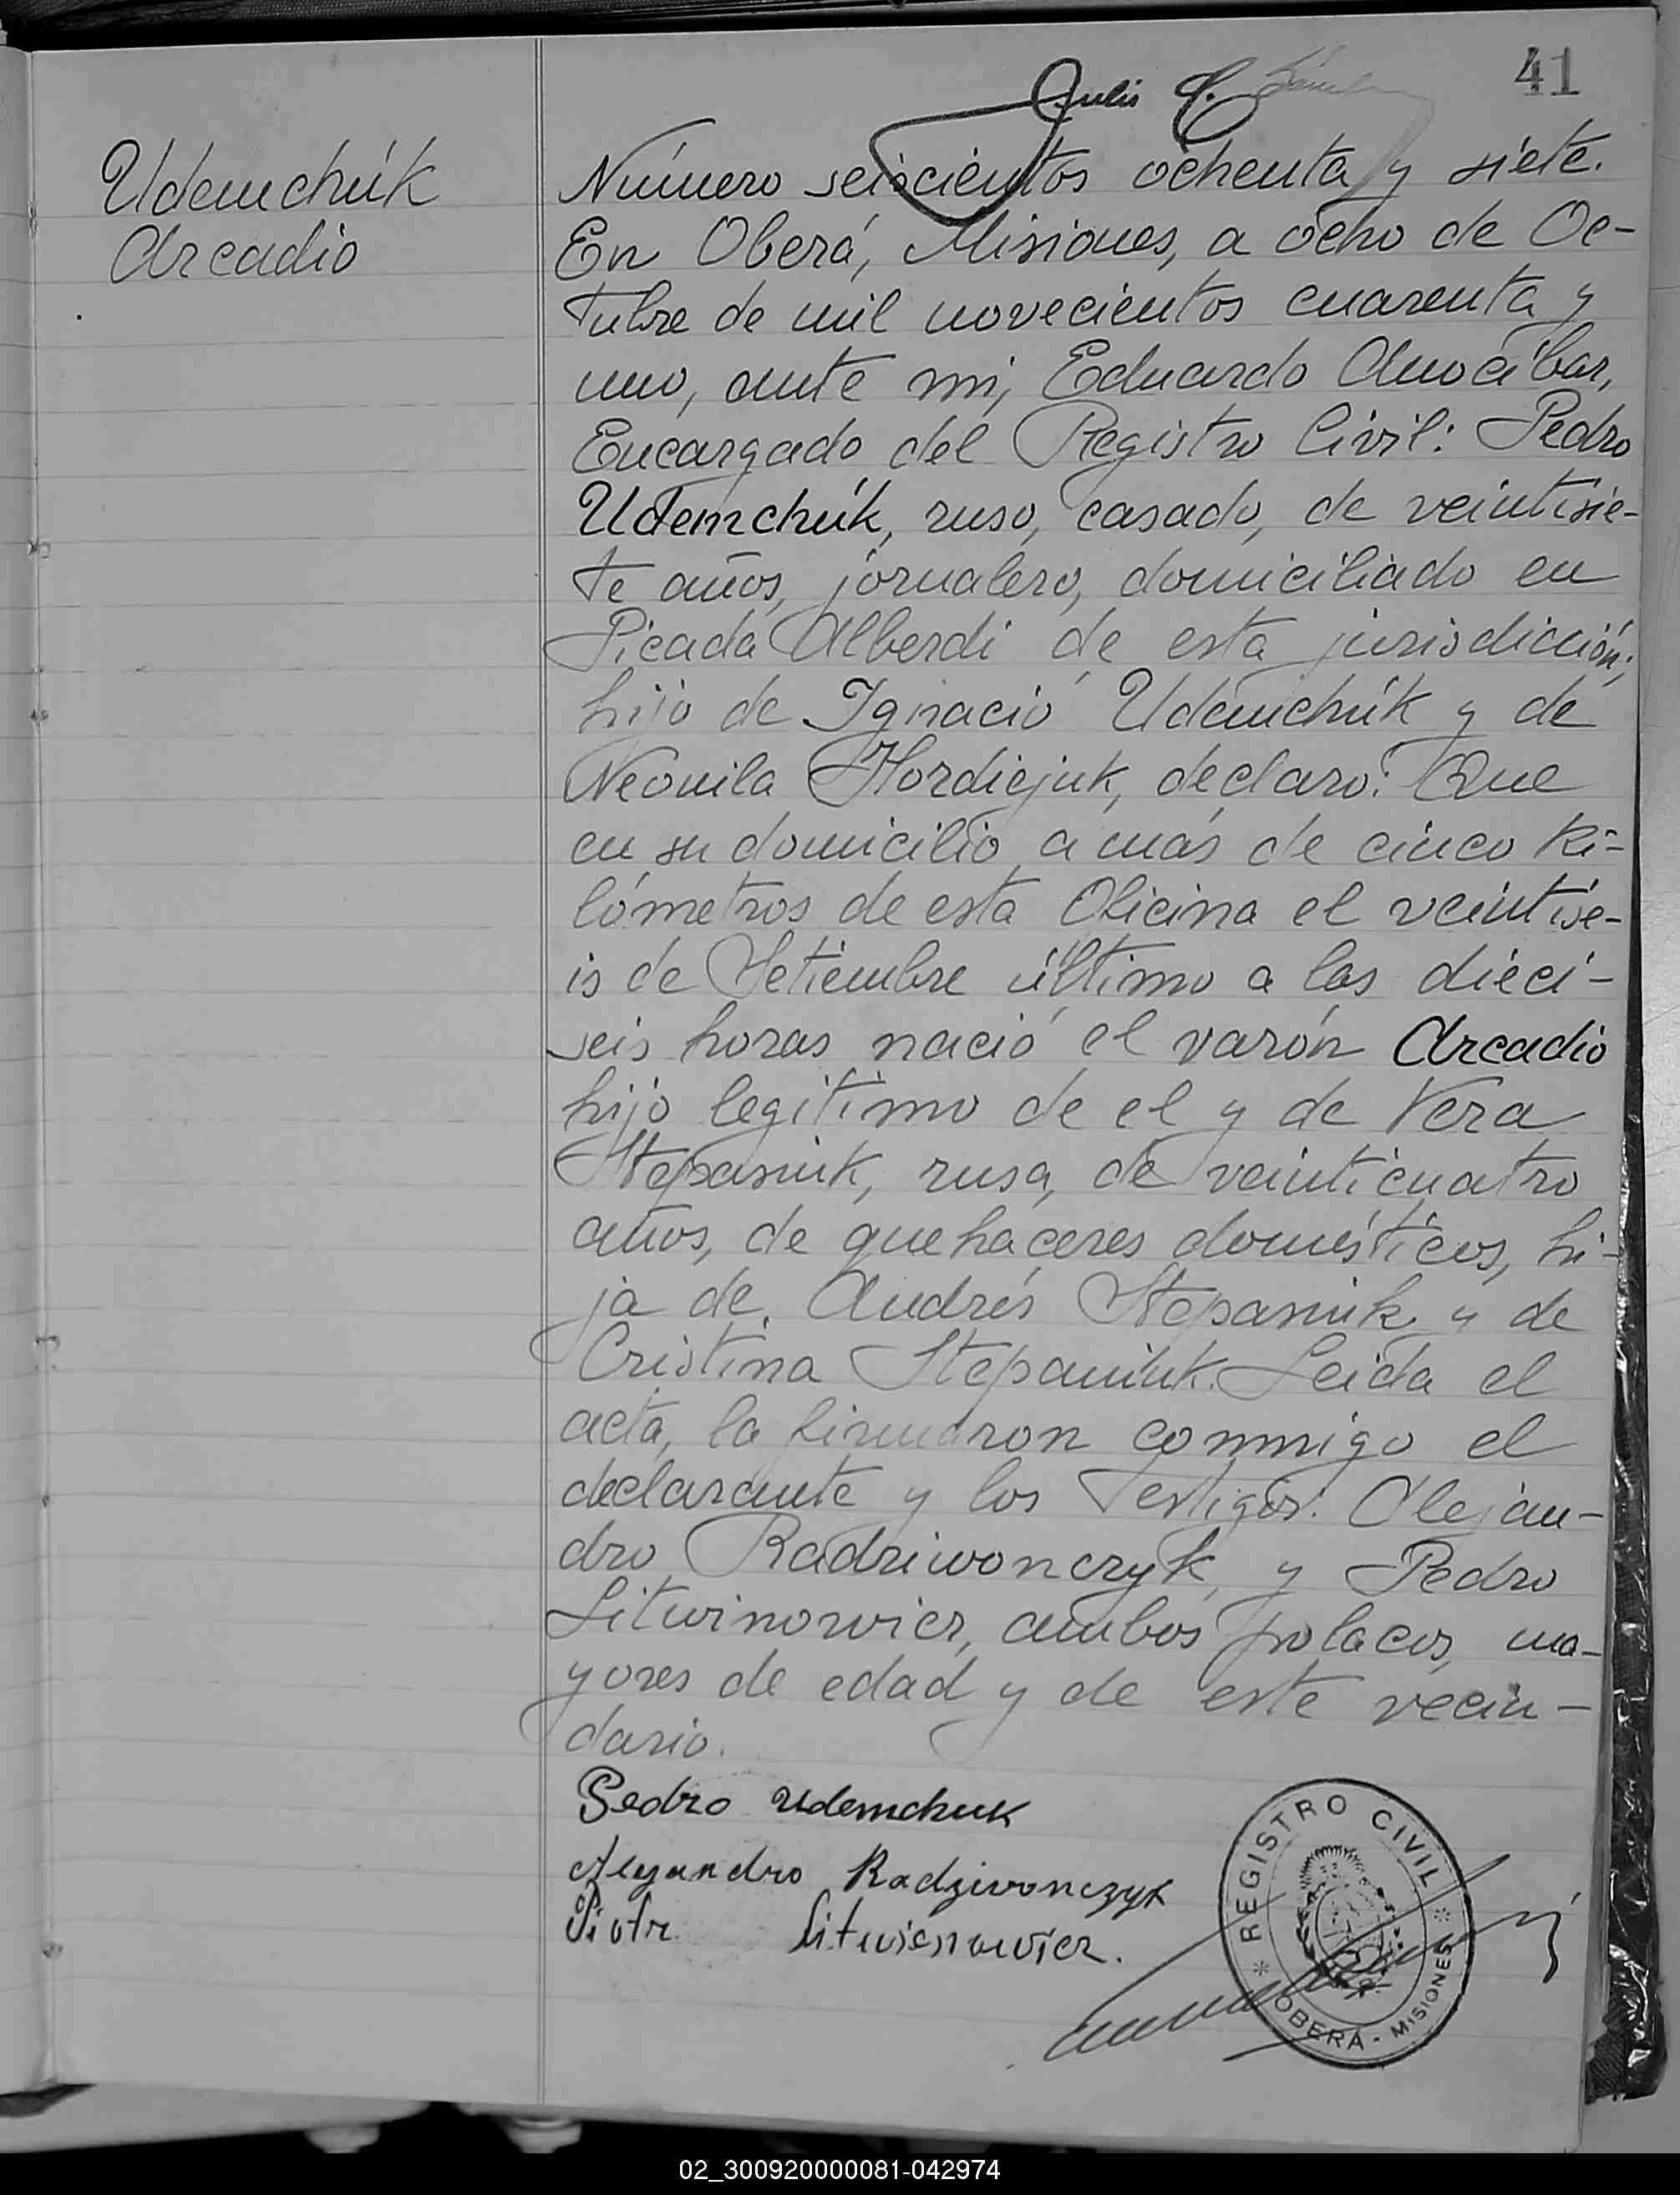 41
Julio C.
Udemchúk
Arcadio
Número seiscientos ochenta y siete.
En Oberá, Misiones, a ocho de Oc-
tubre de mil novecientos cuarenta y
uno, ante mi, Eduardo Anocibar,
Encargado del Registro Civil: Pedro
Udemchúk, ruso, casado, de veintisie-
te años, jornalero, domiciliado en
Picada Alberdi de esta jurisdicción,
hijo de Ignacio Udemchúk y de
Neonila Hordiejuk, declaró: Que
en su domicilio a más de cinco Ki-
lómetros de esta Oficina el veintise-
is de Setiembre último a las dieci-
seis horas nació el varón Arcadio
hijo legítimo de el y de Vera
Stepaniuk, rusa, de veinticuatro
años, de quehaceres domésticos, hi-
ja de Andrés Stepaniuk y de
Cristina Stepaniuk. Leida el
acta, la firmaron conmigo el
declarante y los testigos: Alejan-
dro Radziwonczyk, y Pedro
Litwinowicz, ambos polacos, ma-
yores de edad y de este vecin-
dario.
Pedro Udemchuk
Alejandro Radziwonczyk
Piotr Litwienowicz.
REGISTRO CIVIL
OBERÁ - MISIONES
02_300920000081-042974